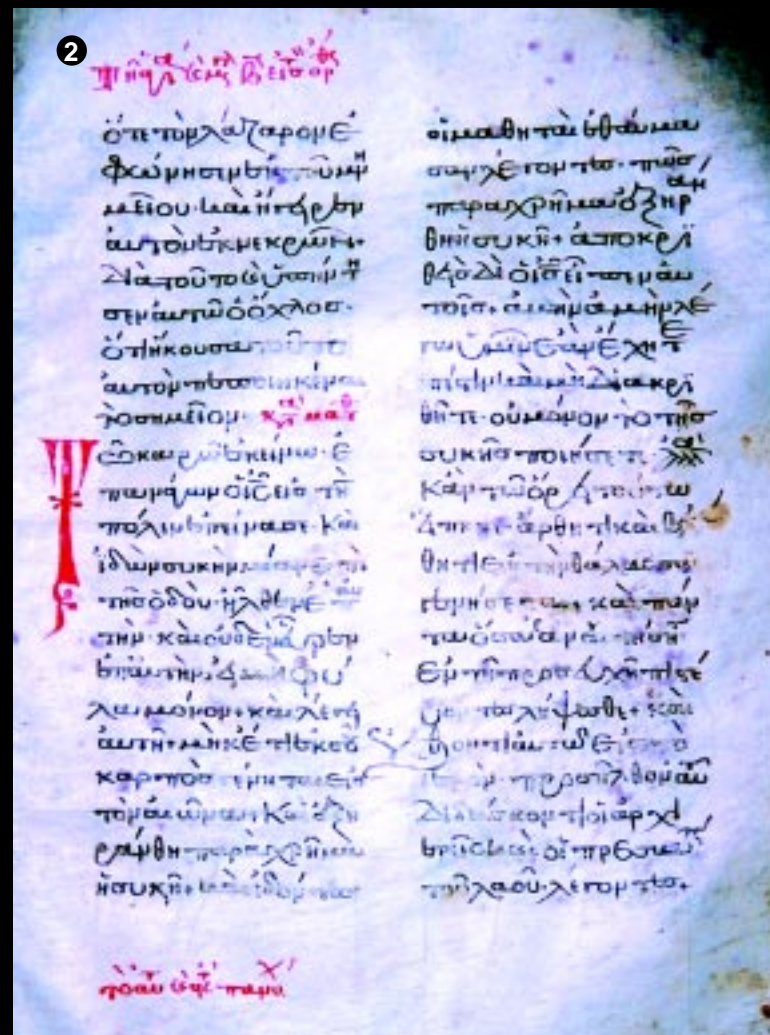 2
ὅτε τὸν λάζαρον ἐ
φώνησεν ἐκ τοῦ μνη
μείου· καὶ ἤγειρεν
αὐτὸν ἐκ νεκρῶν+
διὰ τοῦτο ὑπήντη
σεν αὐτῶ ὁ ὄχλος·
ὅτι ἤκουσαν τοῦτο
αὐτὸν πεποιηκέναι
τὸ σημεῖον· κτ ματθ
Τῶ καιρῶ ἐκείνω· ἐ
πανάγων ὁ ις εἰς τὴν
πόλιν ἐπείνασε· καὶ
ἰδὼν συκῆν μίαν ἐπὶ
τῆς ὁδοῦ· ἦλθεν ἐπ αὐ
τήν· καὶ οὐδὲν εὗρεν
ἐν αὐτῆ εἰ μὴ φύλ
λα μόνον· καὶ λέγει
αὐτῆ· μηκέτι ἐκ σοῦ
καρπὸς γένηται εἰς
τὸν αἰῶνα· καὶ ἐξη
ράνθη παραχρῆμα
ἡ συκῆ· καὶ ἰδόντες
οἱ μαθηταὶ ἐθαύμα
σαν λέγοντες· πῶς
παραχρῆμα ἐξηράν
θη ἡ συκῆ+ ἀποκρι
θεὶς δὲ ὁ ις εἶπεν αὐ
τοῖς· ἀμὴν ἀμὴν λέ
γω ὑμῖν ἐὰν ἔχητε
πίστιν καὶ μὴ διακρι
θῆτε· οὐ μόνον τὸ τῆς
συκῆς ποιήσετε· ἀλλὰ
κἂν τῶ ὄρει τούτω
εἴπητε· ἄρθητι καὶ βλή
θητι εἰς τὴν θάλασσαν
γενήσεται· καὶ πάν
τα ὅσα
ἐν τῆ προσευχῆ πιστεύ
οντες λήψεσθε+ καὶ
ἐλθόντι αὐτῶ εἰς τὸ
ἱερὸν· προσῆλθον αὐτῶ
διδάσκοντι οἱ ἀρχι
ερεῖς καὶ οἱ πρεσβύτ
τοῦ λαοῦ· λέγοντες+